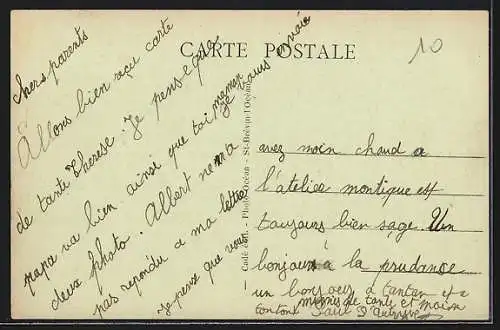 CARTE POSTALE
10
chers parents
Allons bien reçu carte
de tante Therese. Je pense que
papa va bien ainsi que toi, meman
Je vous envoie
deux photo. Albert ne m'a
pas repondu a ma lettre
Je pense que vous
Cadé édit. - Photo-Océan - St-Brévin-l'Océan
avez moin chaud a
l'atelier montique est
toujours bien sage. Un
bonjour à la prudance
un bonjour a tantan et a
tonton
mimis de tante et moin
Paul